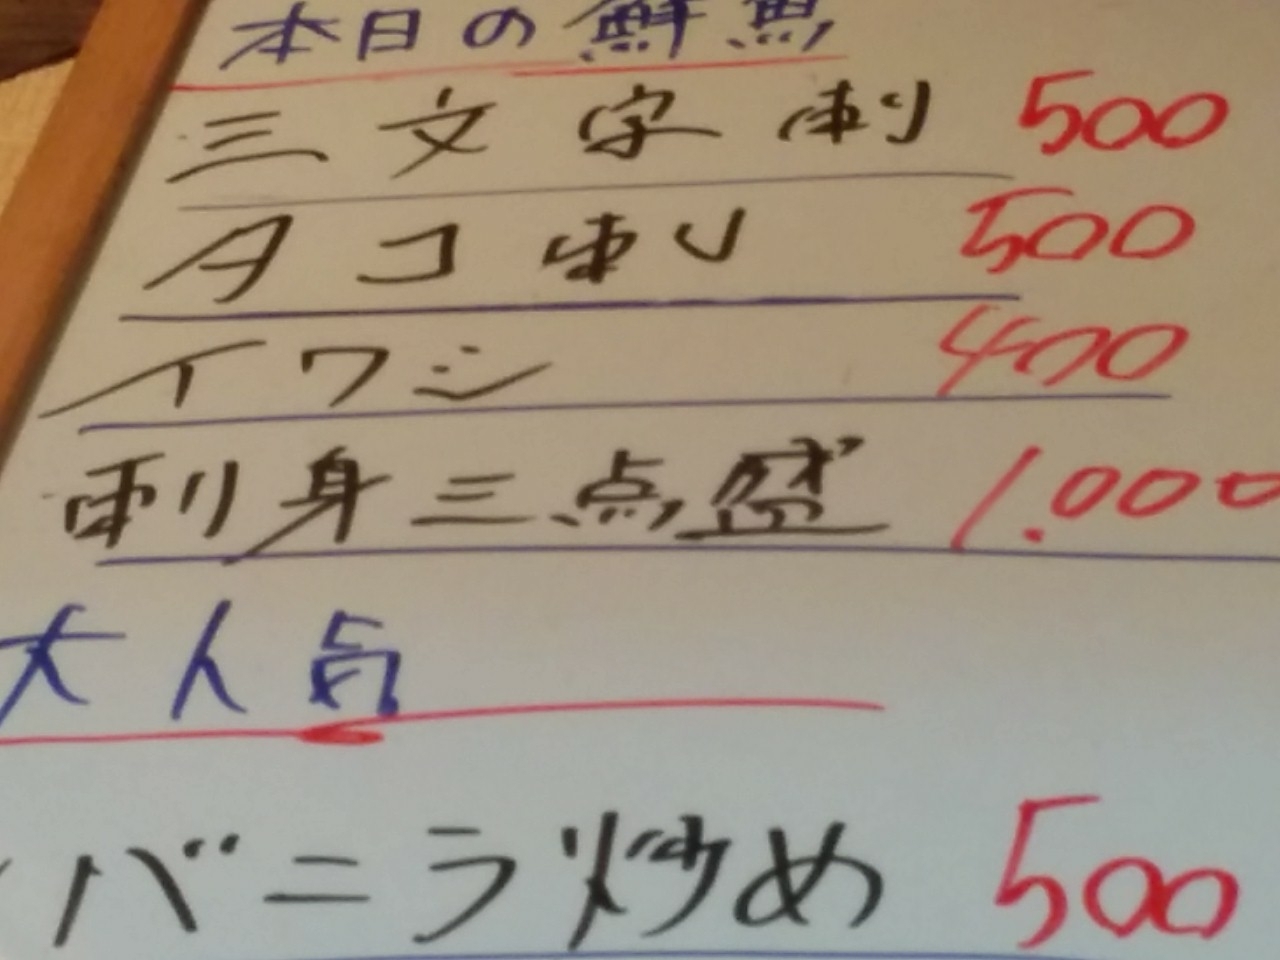 本日の鮮魚
三文字刺 500
タコ刺 500
イワシ 400
刺身三点盛 1.000
大人気
バニラ炒め 500